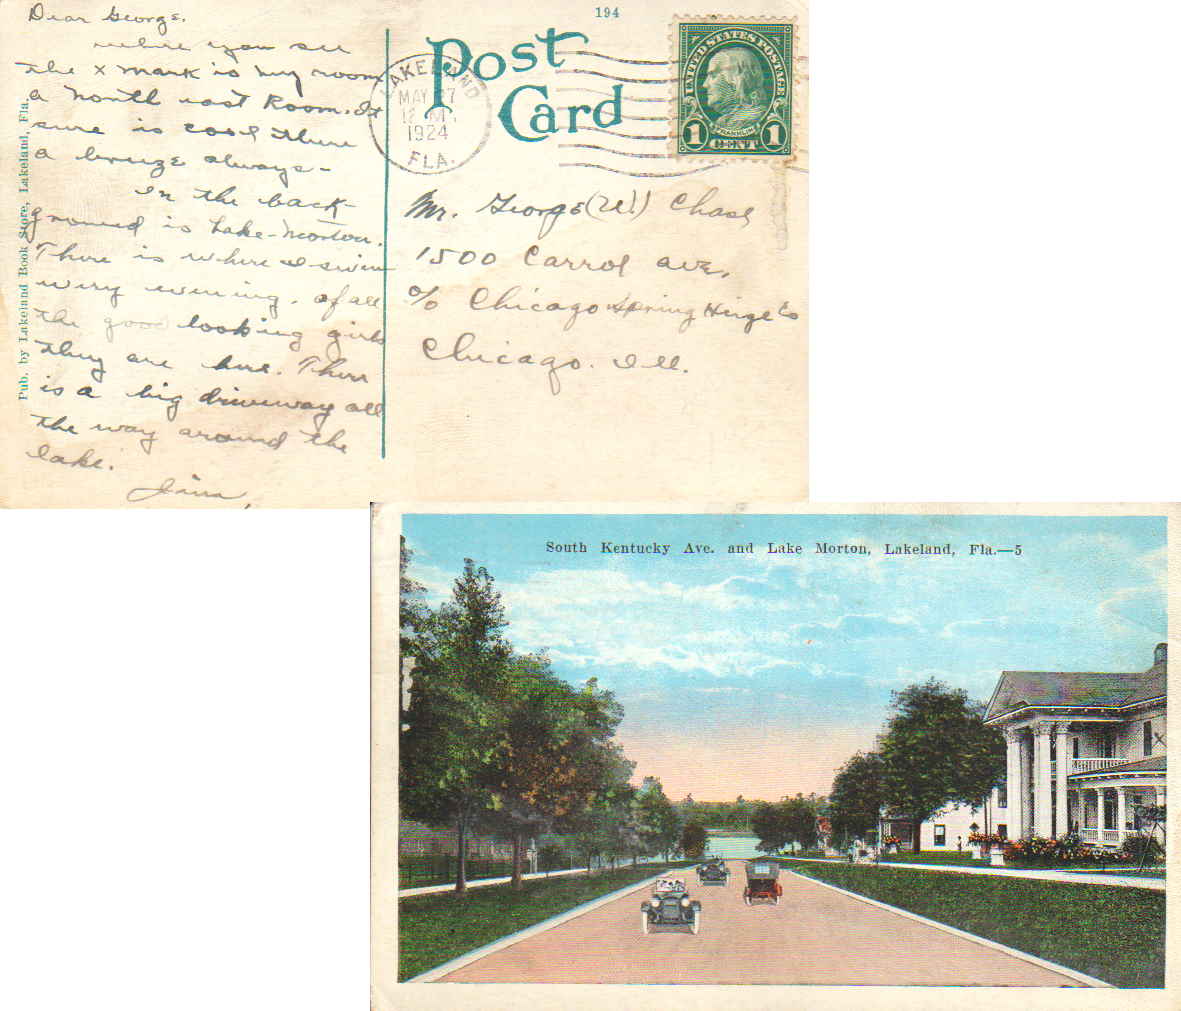 194
Post
Card
Dear George.
where you see
the x mark is my room
a north east Room. It
sure is cool there
a breeze always -
In the back-
ground is Lake-Morton.
There is where I swim
every evening. of all
the good looking girls
they are here. There
is a big driveway all
the way around the
lake.
Pub. by Lakeland Book Store, Lakeland, Fla.
LAKELAND
MAY 27
12 M
1924
FLA.
UNITED STATES POSTAGE
FRANKLIN
1 CENT 1
Mr. George Chase
1500 Carrol ave.
c/o Chicago Spring Hinge Co
Chicago. Ill.
South Kentucky Ave. and Lake Morton, Lakeland, Fla.—5
X